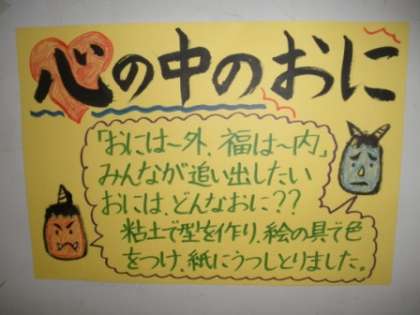 心の中のおに
「おには～外、福は～内」
みんなが追い出したい
おには、どんなおに??
粘土で型を作り、絵の具で色
をつけ、紙にうつしとりました。